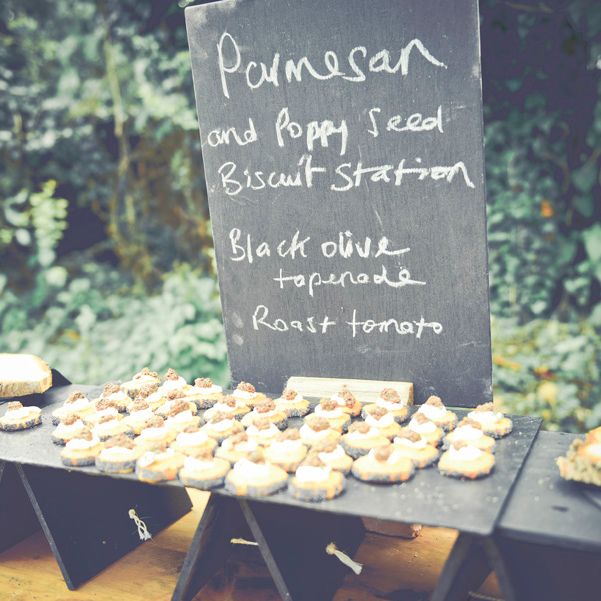 Parmesan
and Poppy Seed
Biscuit Station
Black olive
tapenade
Roast tomato